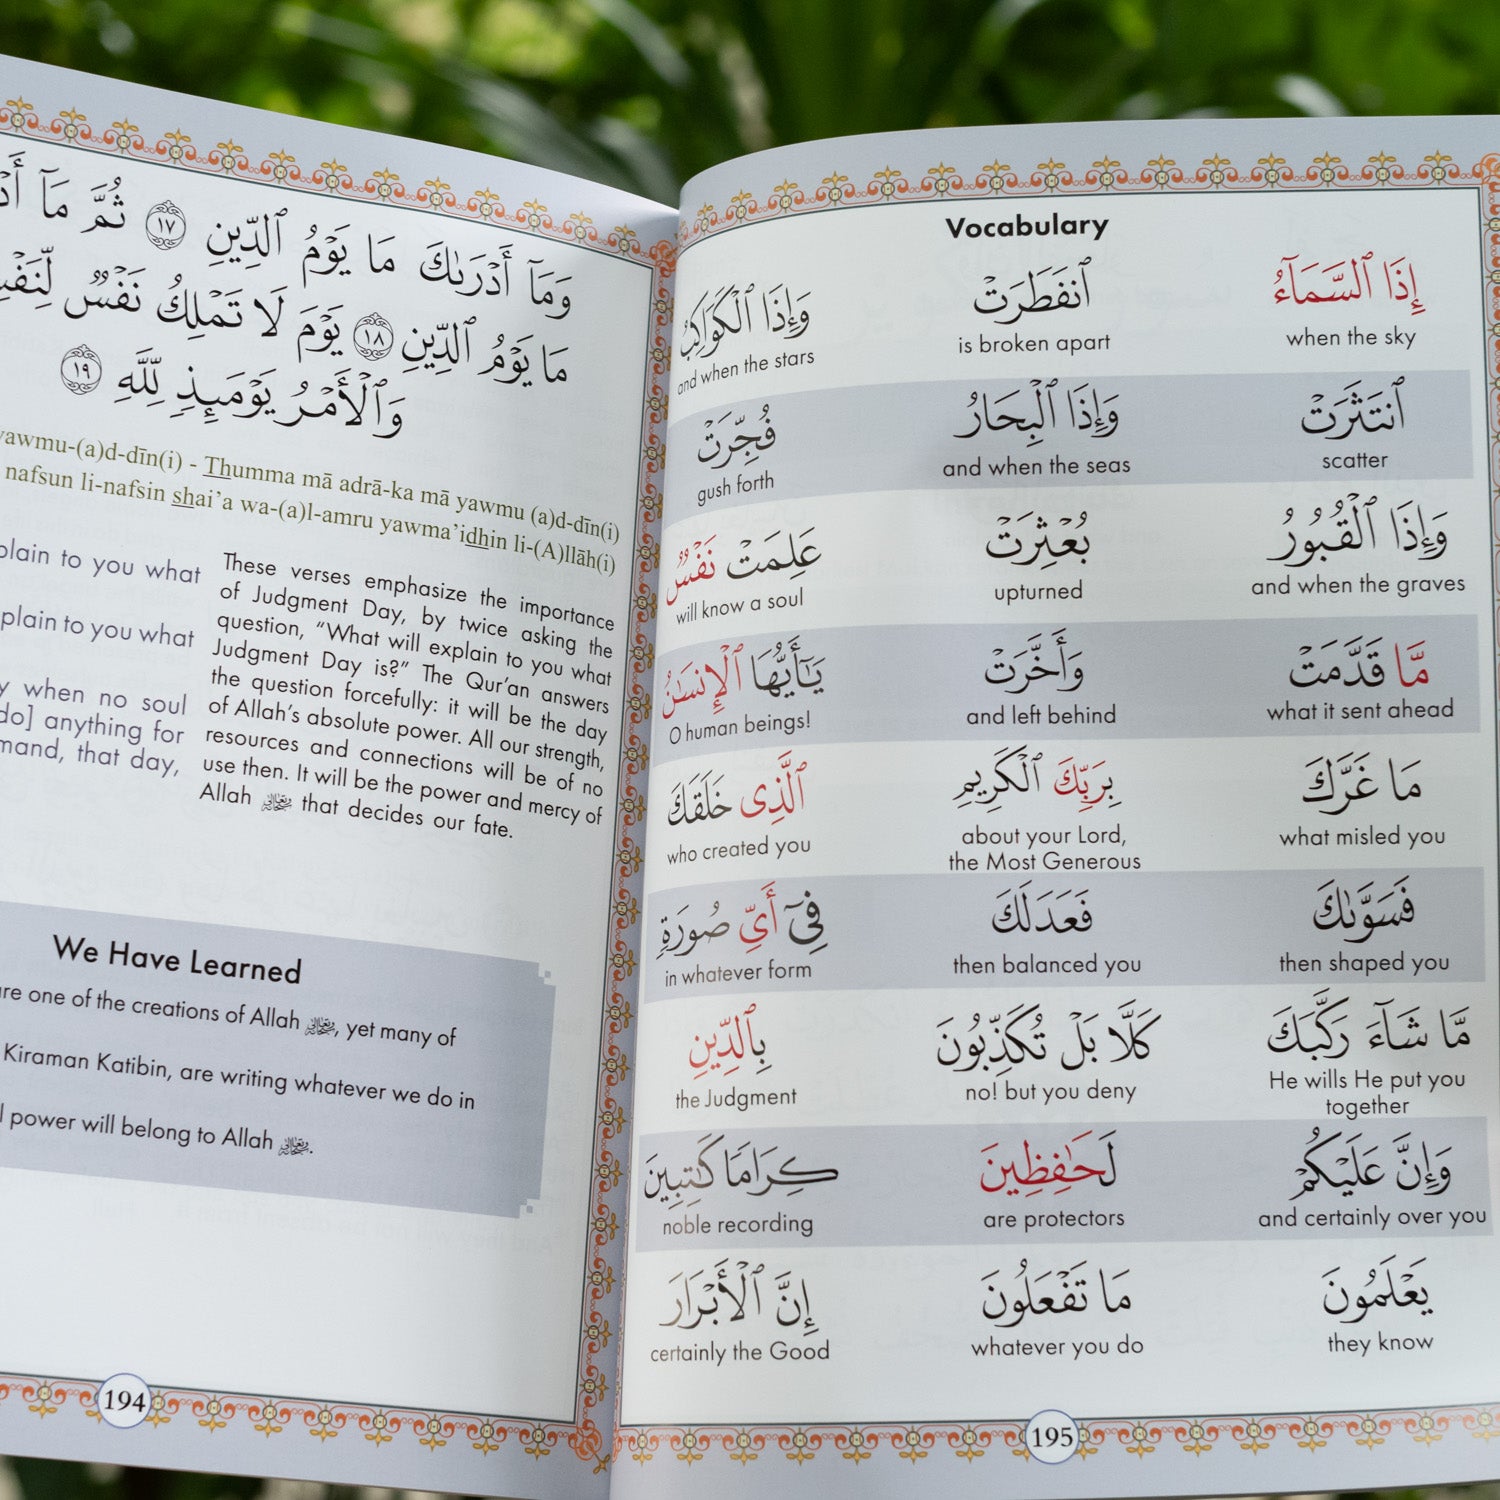 وَمَآ أَدْرَىٰكَ مَا يَوْمُ ٱلدِّينِ ١٧ ثُمَّ مَآ
مَا يَوْمُ ٱلدِّينِ ١٨ يَوْمَ لَا تَمْلِكُ نَفْسٌ
وَٱلْأَمْرُ يَوْمَئِذٍ لِّلَّهِ ١٩
yawmu-(a)d-dīn(i) - Thumma mā adrā-ka mā yawmu (a)d-dīn(i)
nafsun li-nafsin shai’a wa-(a)l-amru yawma’idhin li-(A)llāh(i)
to you what
to you what
when no soul
do] anything for
that day,
These verses emphasize the importance
of Judgment Day, by twice asking the
question, “What will explain to you what
Judgment Day is?” The Qur’an answers
the question forcefully: it will be the day
of Allah’s absolute power. All our strength,
resources and connections will be of no
use then. It will be the power and mercy of
Allah that decides our fate.
We Have Learned
are one of the creations of Allah , yet many of
Kiraman Katibin, are writing whatever we do in
power will belong to Allah .
194
Vocabulary
إِذَا ٱلسَّمَآءُ ٱنفَطَرَتْ وَإِذَا ٱلْكَوَاكِبُ
when the sky is broken apart and when the stars
ٱنتَثَرَتْ وَإِذَا ٱلْبِحَارُ فُجِّرَتْ
scatter and when the seas gush forth
وَإِذَا ٱلْقُبُورُ بُعْثِرَتْ عَلِمَتْ نَفْسٌ
and when the graves upturned will know a soul
مَّا قَدَّمَتْ وَأَخَّرَتْ يَـٰٓأَيُّهَا ٱلْإِنسَـٰنُ
what it sent ahead and left behind O human beings!
مَا غَرَّكَ بِرَبِّكَ ٱلْكَرِيمِ ٱلَّذِى خَلَقَكَ
what misled you about your Lord, who created you
the Most Generous
فَسَوَّىٰكَ فَعَدَلَكَ فِىٓ أَىِّ صُورَةٍ
then shaped you then balanced you in whatever form
مَّا شَآءَ رَكَّبَكَ كَلَّا بَلْ تُكَذِّبُونَ بِٱلدِّينِ
He wills He put you no! but you deny the Judgment
together
وَإِنَّ عَلَيْكُمْ لَحَـٰفِظِينَ كِرَامًا كَـٰتِبِينَ
and certainly over you are protectors noble recording
يَعْلَمُونَ مَا تَفْعَلُونَ إِنَّ ٱلْأَبْرَارَ
they know whatever you do certainly the Good
195